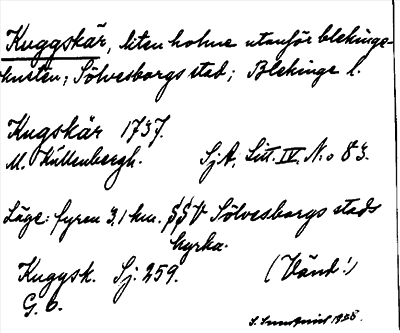 Kuggskär, liten holme utanför blekinge-
kusten; Sölvesborgs stad; Blekinge l.
Kugskär 1737.
M. Kullenbergh. SjA, Litt. IV. No 83.
Läge: fyren 3,1 km. SSV Sölvesborgs stads
kyrka.
Kuggsk. Sj: 259. (Vänd!)
G. b.